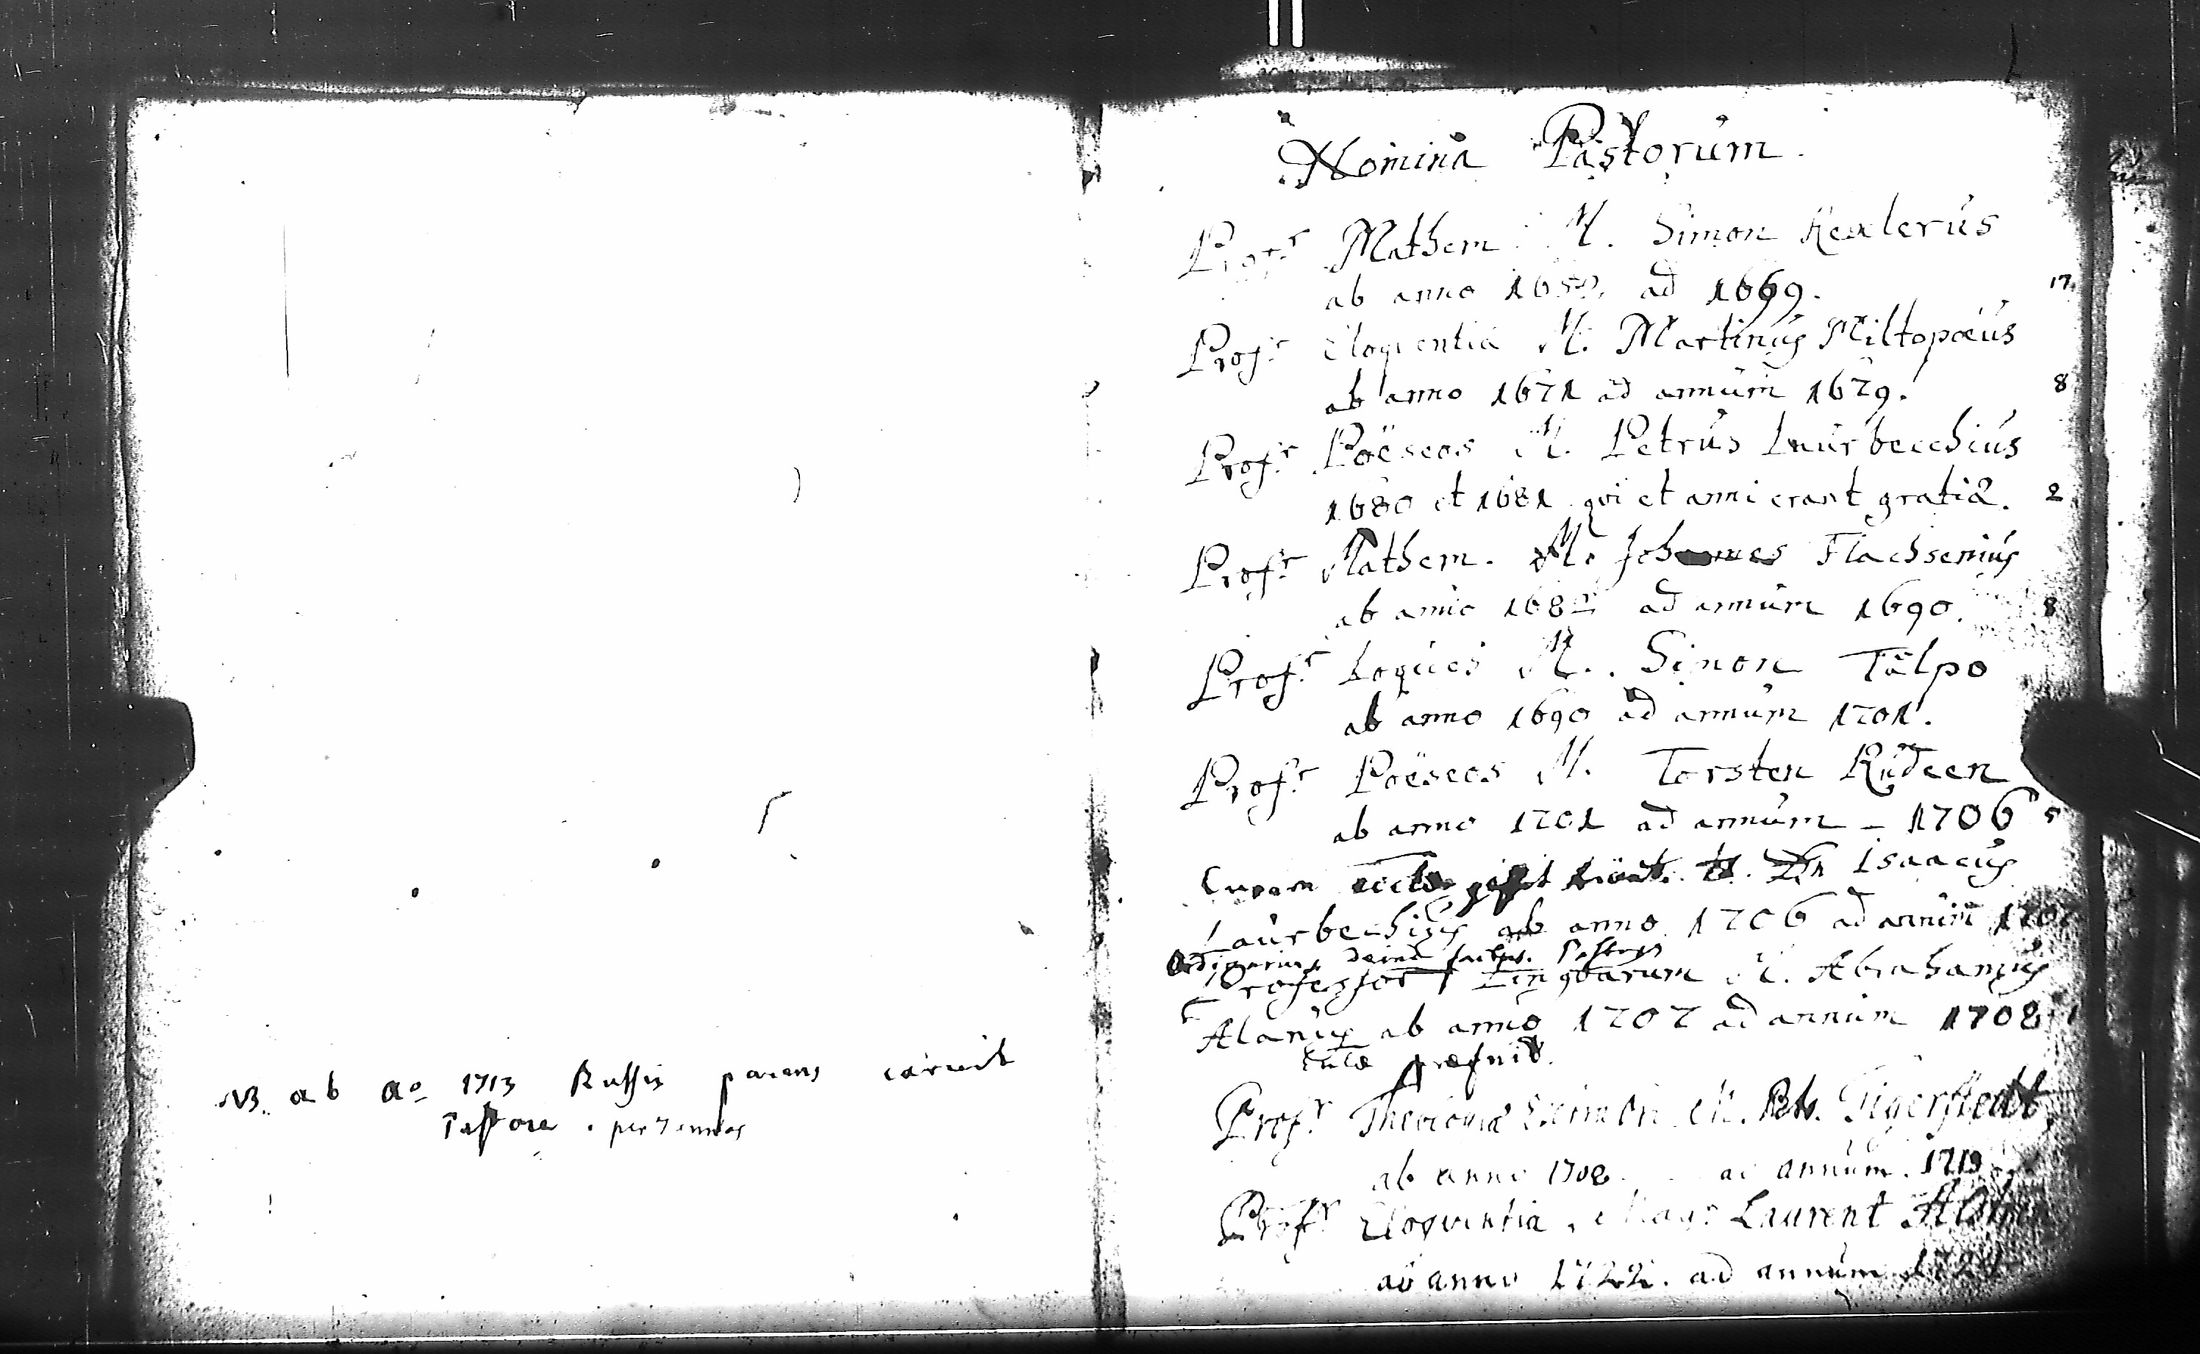 NB. ab ao 1713 Russis parens caruit
Pastore. per 7 annos
Nomina Pastorum.
Profr Mathem. M. Simon Kexlerus
ab anno 1652, ad 1669. 17.
Profr Eloqventiæ M. Martinus Miltopæus
ab anno 1671 ad annum 1679. 8
Profr Poëseos M. Petrus Laurbecchius
1680 et 1681 qvi et anni erant gratiæ. 2
Profr Mathem. M. Johannes Flachsenius
ab anno 1682 ad annum 1690. 8
Profr Logices M. Simon Tålpo
ab anno 1690 ad annum 1701.
Profr Poëseos M. Torsten Rudeen
ab anno 1701 ad annum – 1706 5
Curam Isaacus
Laurbechius ab anno 1706 ad annum 1707
Ordinarius deind Pastor
Professor Lingvarum M. Abrahamus
Alanus ab anno 1707 ad annum 1708 1
præfuit.
Profr Theologiæ M. Tigerstedt
ab anno 1708. ad annum. 1719
Profr Eloqventiæ, Mag: Laurent
ab anno 1722. ad annum